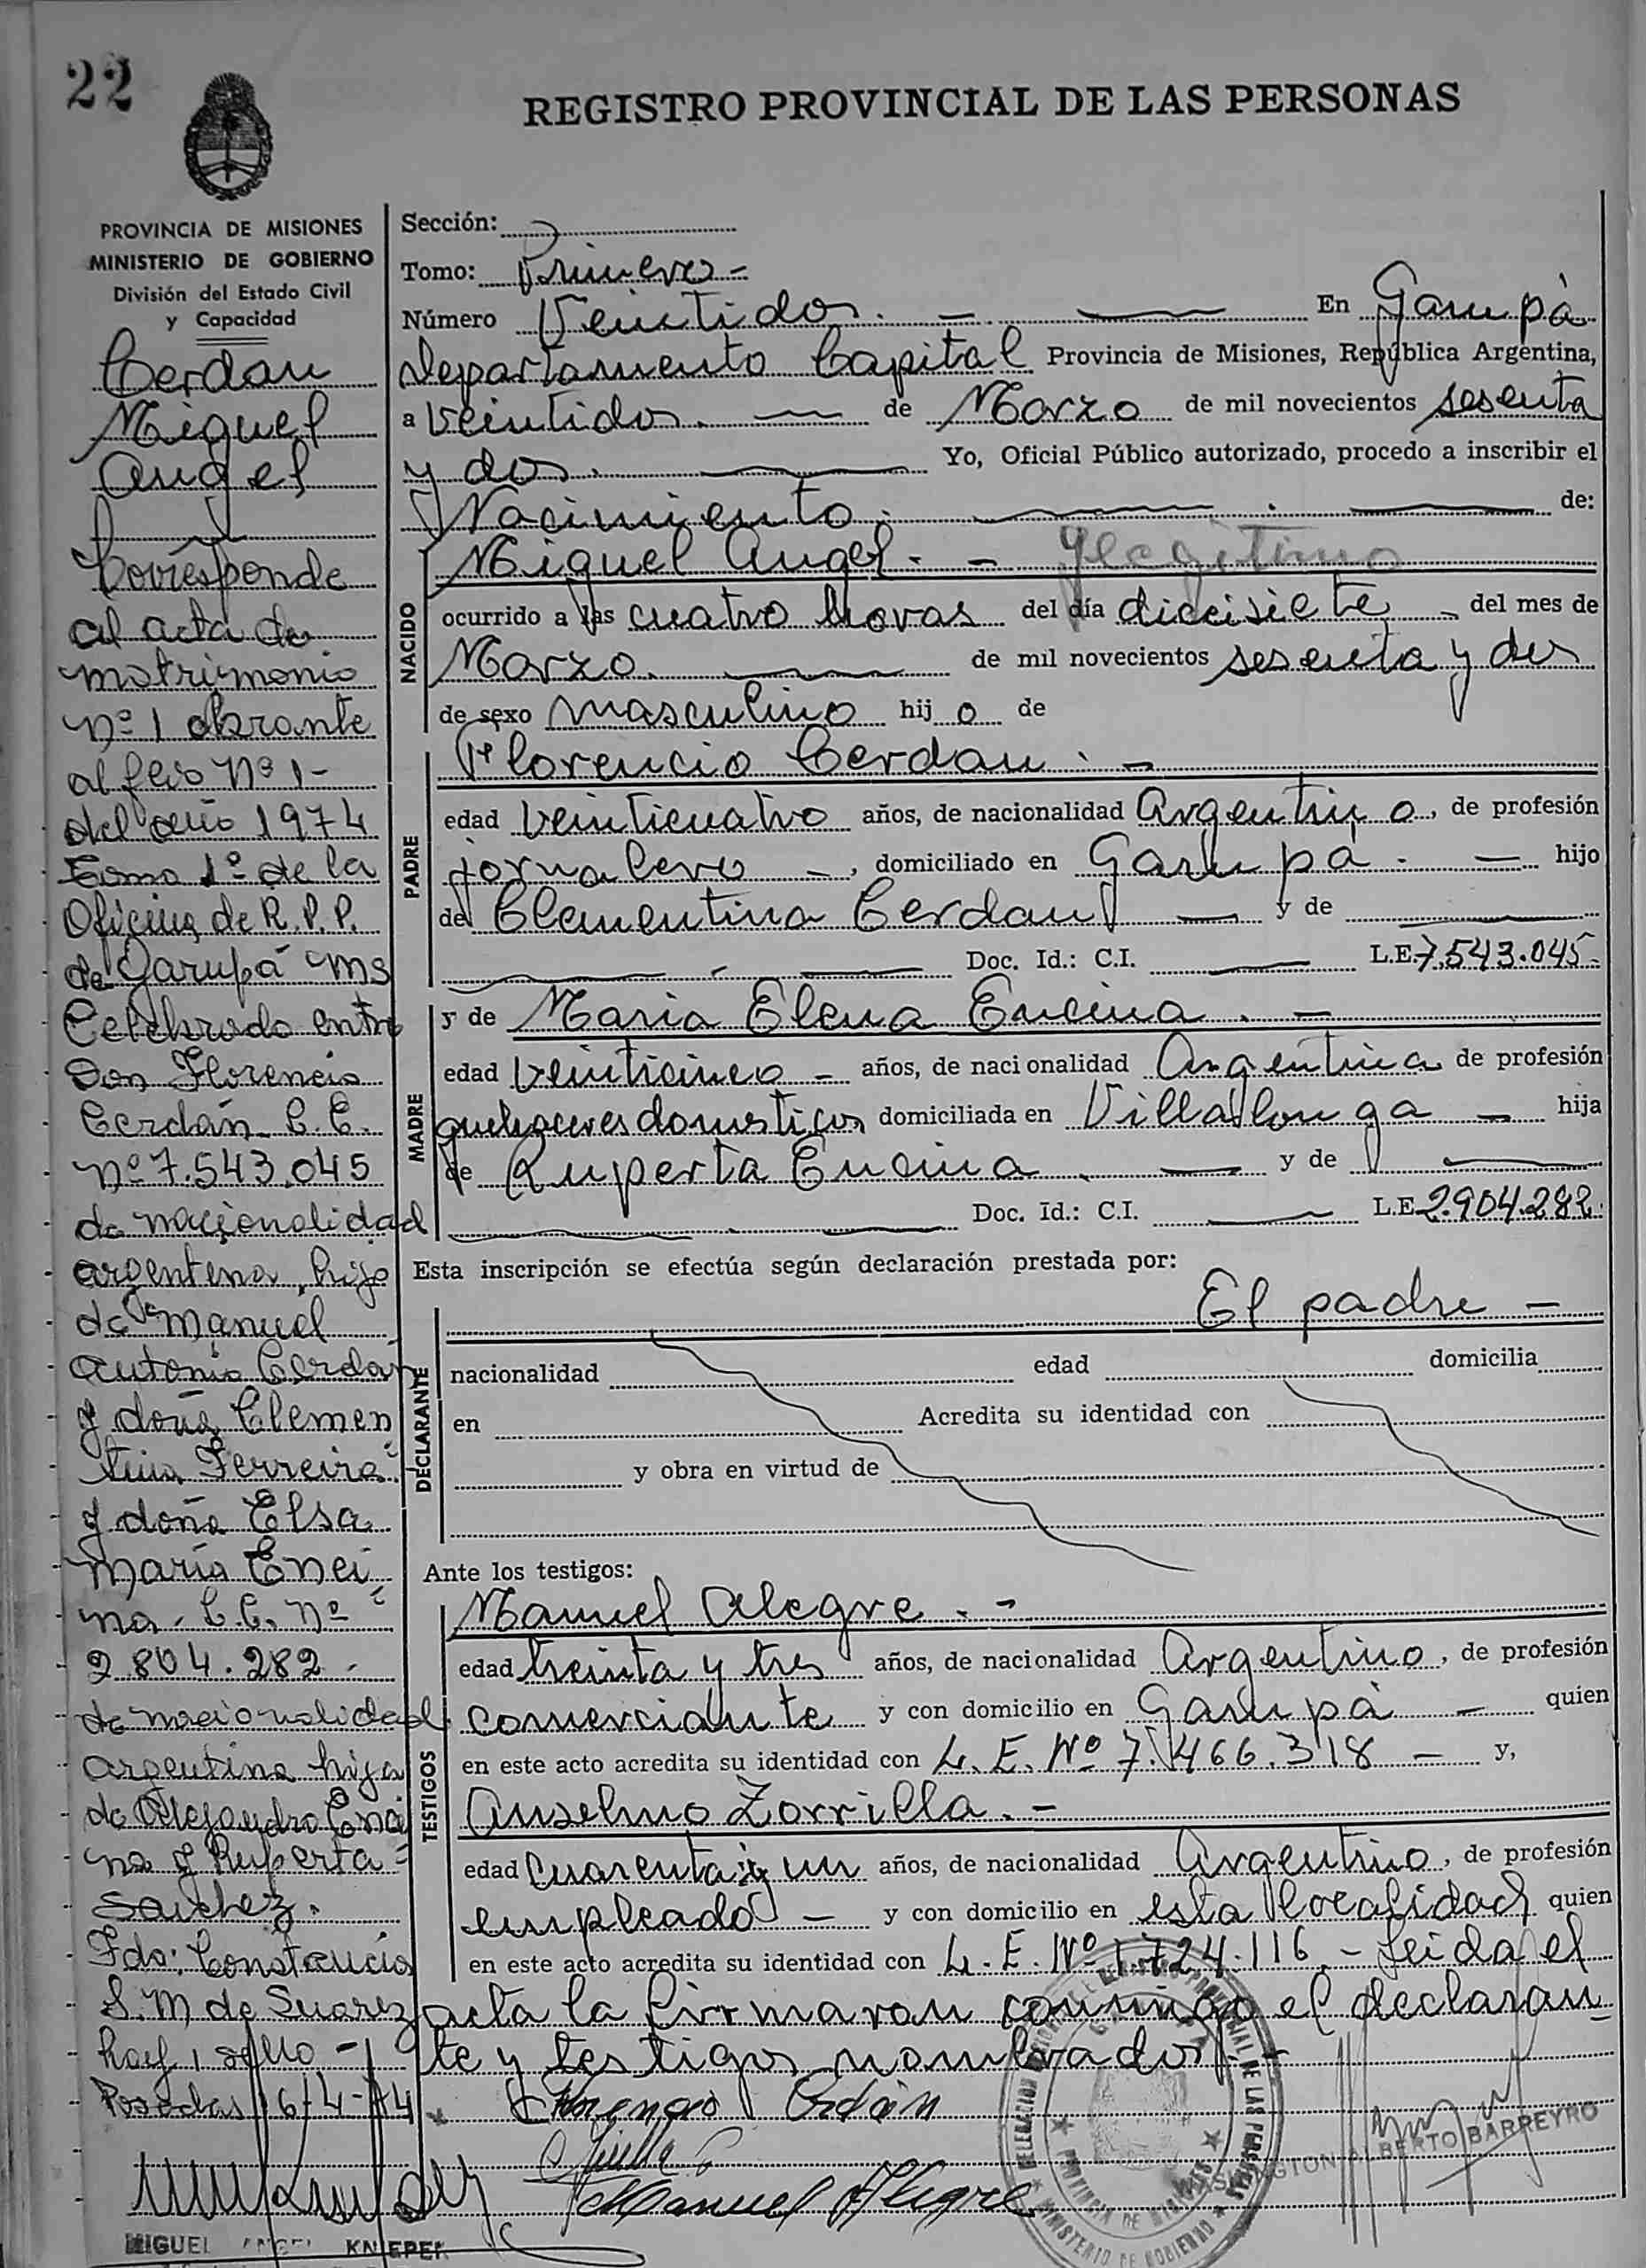 22
REGISTRO PROVINCIAL DE LAS PERSONAS
PROVINCIA DE MISIONES
MINISTERIO DE GOBIERNO
División del Estado Civil
y Capacidad
Cerdan
Miguel
Angel
Corresponde
al acta de
matrimonio
nº 1 obrante
al folio Nº 1-
del año 1974
Tomo 1º de la
Oficina de R.P.P.
de Garupá Ms
Celebrado entre
Don Florencio
Cerdán C.C.
Nº 7.543.045
de nacionalidad
argentena, hijo
de Manuel
Antonio Cerdán
y doña Clemen
tina Ferreira
y doña Elsa
María Enci
na - C.C. Nº
2.804.282 -
de nacionalidad
argentina hija
de Alejandro Enci
na y Ruperta
Sanchez.
Fdo: Constancia
S.M de Suarez
hay 1 sello -
Posadas 16/4-74
MIGUEL ANGEL KNIEPER
Sección:
Tomo: Primero -
Número Veintidos. - En Garupá
departamento Capital Provincia de Misiones, República Argentina,
a veintidos. de Marzo de mil novecientos sesenta
y dos. Yo, Oficial Público autorizado, procedo a inscribir el
Nacimiento. de:
NACIDO
Miguel Angel. - Ylegitimo
ocurrido a las cuatro horas del día diecisiete - del mes de
Marzo. de mil novecientos sesenta y dos
de sexo masculino hijo de
PADRE
Florencio Cerdan. -
edad veinticuatro años, de nacionalidad Argentino, de profesión
jornalero -, domiciliado en Garupá. - hijo
de Clementina Cerdan y de
Doc. Id.: C.I. L.E. 7.543.045-
MADRE
y de Maria Elena Encina. -
edad veinticinco - años, de nacionalidad Argentina de profesión
quehaceres domesticos domiciliada en Villalonga - hija
de Ruperta Encina. y de
Doc. Id.: C.I. L.E. 2.904.282.
Esta inscripción se efectúa según declaración prestada por:
DECLARANTE
El padre -
nacionalidad edad domicilia
en Acredita su identidad con
y obra en virtud de
Ante los testigos:
TESTIGOS
Manuel Alegre. -
edad treinta y tres años, de nacionalidad Argentino, de profesión
comerciante y con domicilio en Garupá - quien
en este acto acredita su identidad con L. E. Nº 7.466.318 - y,
Anselmo Zorrilla. -
edad cuarenta y un años, de nacionalidad Argentino, de profesión
empleado - y con domicilio en esta localidad quien
en este acto acredita su identidad con L. E. Nº 1.724.116. - Leida el
acta la firmaron conmigo el declaran
te y testigos nombrados -
Florencio Cerdán
Manuel Alegre
WASHINGTON ALBERTO BARREYRO